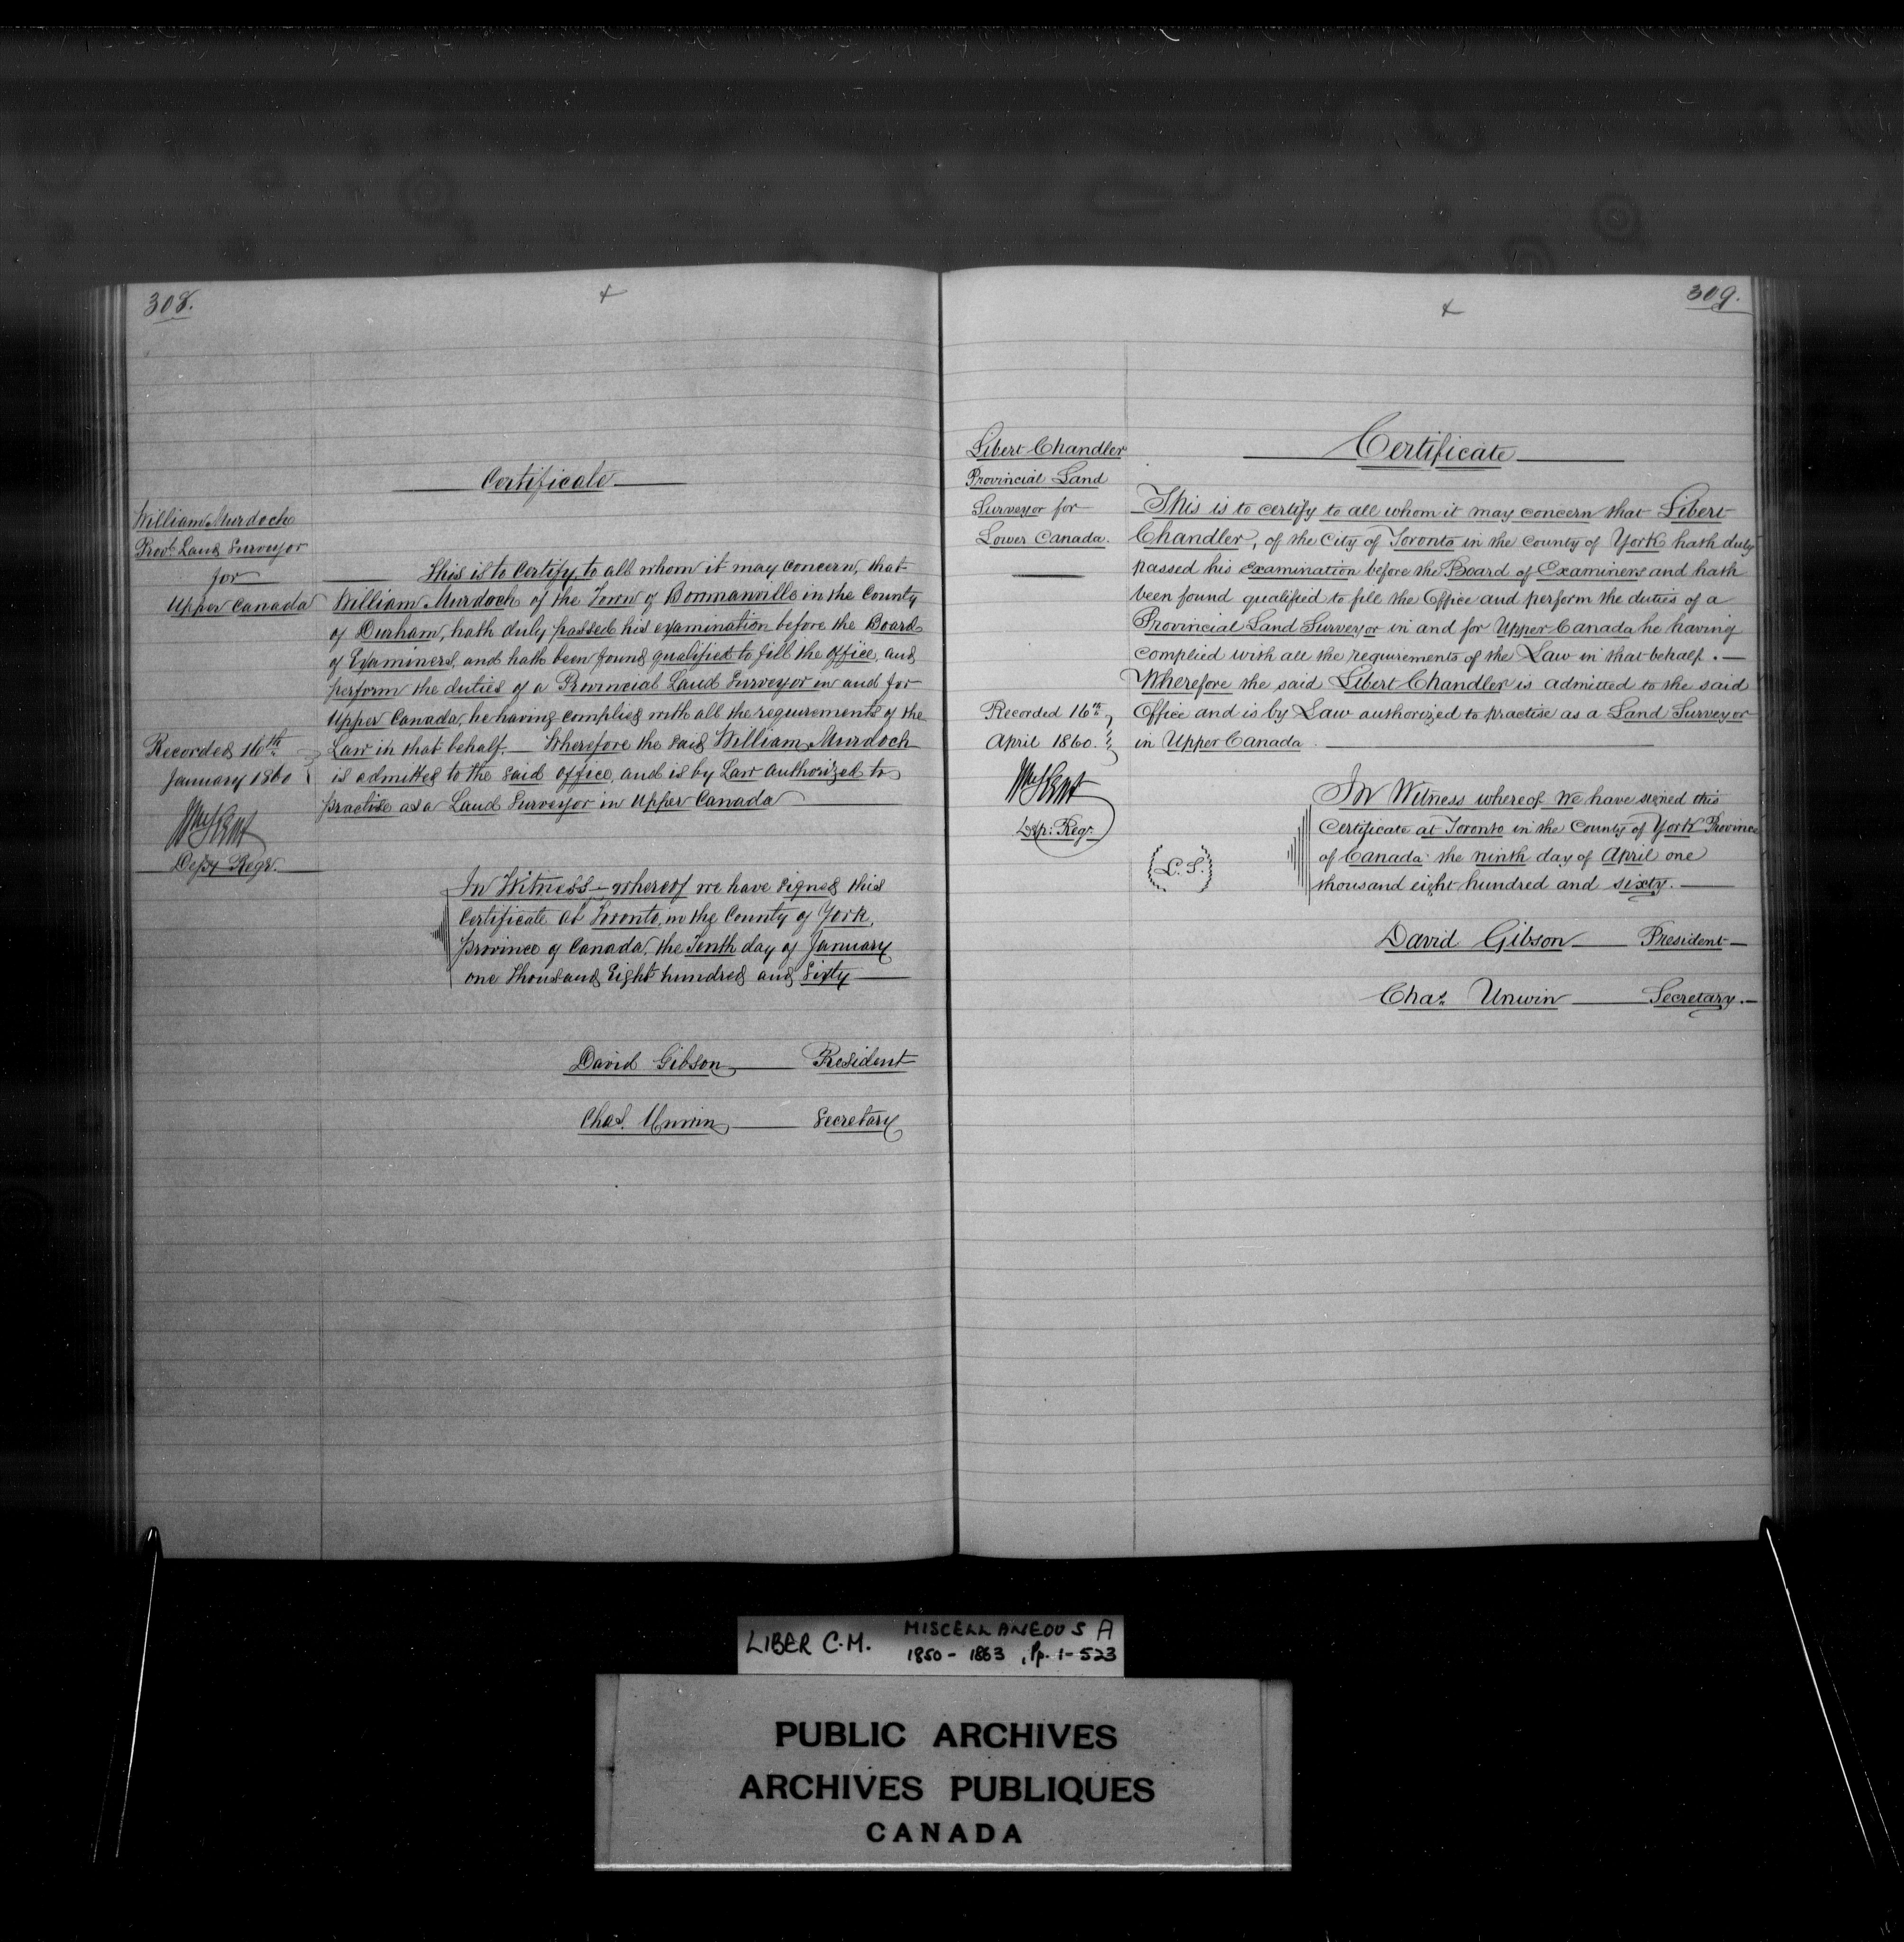 308.
Certificate
William Murdoch
Provl. Land Surveyor
for
Upper Canada
This is to Certify to all whom it may concern, that
William Murdoch of the Town of Bowmanville in the County
of Durham, hath duly passed his examination before the Board
of Examiners, and hath been found qualified to fill the office, and
perform the duties of a Provincial Land Surveyor in and for
Upper Canada, he having complied with all the requirements of the
Law in that behalf. — Wherefore the said William Murdoch
is admitted to the said office, and is by Law authorized to
practise as a Land Surveyor in Upper Canada
Recorded 16th
January 1860
Wm Kent
Depy Regr.
In Witness whereof we have signed this
Certificate at Toronto, in the County of York,
province of Canada, the Tenth day of January
one thousand Eight hundred and Sixty
David Gibson President
Chas. Unwin Secretary
309.
Certificate
Libert Chandler
Provincial Land
Surveyor for
Lower Canada.
This is to certify to all whom it may concern that Libert
Chandler, of the City of Toronto in the County of York hath duly
passed his examination before the Board of Examiners and hath
been found qualified to fill the Office and perform the duties of a
Provincial Land Surveyor in and for Upper Canada he having
complied with all the requirements of the Law in that behalf. —
Wherefore the said Libert Chandler is admitted to the said
Office and is by Law authorized to practise as a Land Surveyor
in Upper Canada
Recorded 16th
April 1860.
Wm Kent
Dep: Regr.
In Witness whereof We have signed this
Certificate at Toronto in the County of York Province
of Canada the ninth day of April one
thousand eight hundred and sixty.
(L.S.)
David Gibson President
Chas. Unwin Secretary.
LIBER C.M. MISCELLANEOUS A
1850 - 1863, Pp. 1-523
PUBLIC ARCHIVES
ARCHIVES PUBLIQUES
CANADA